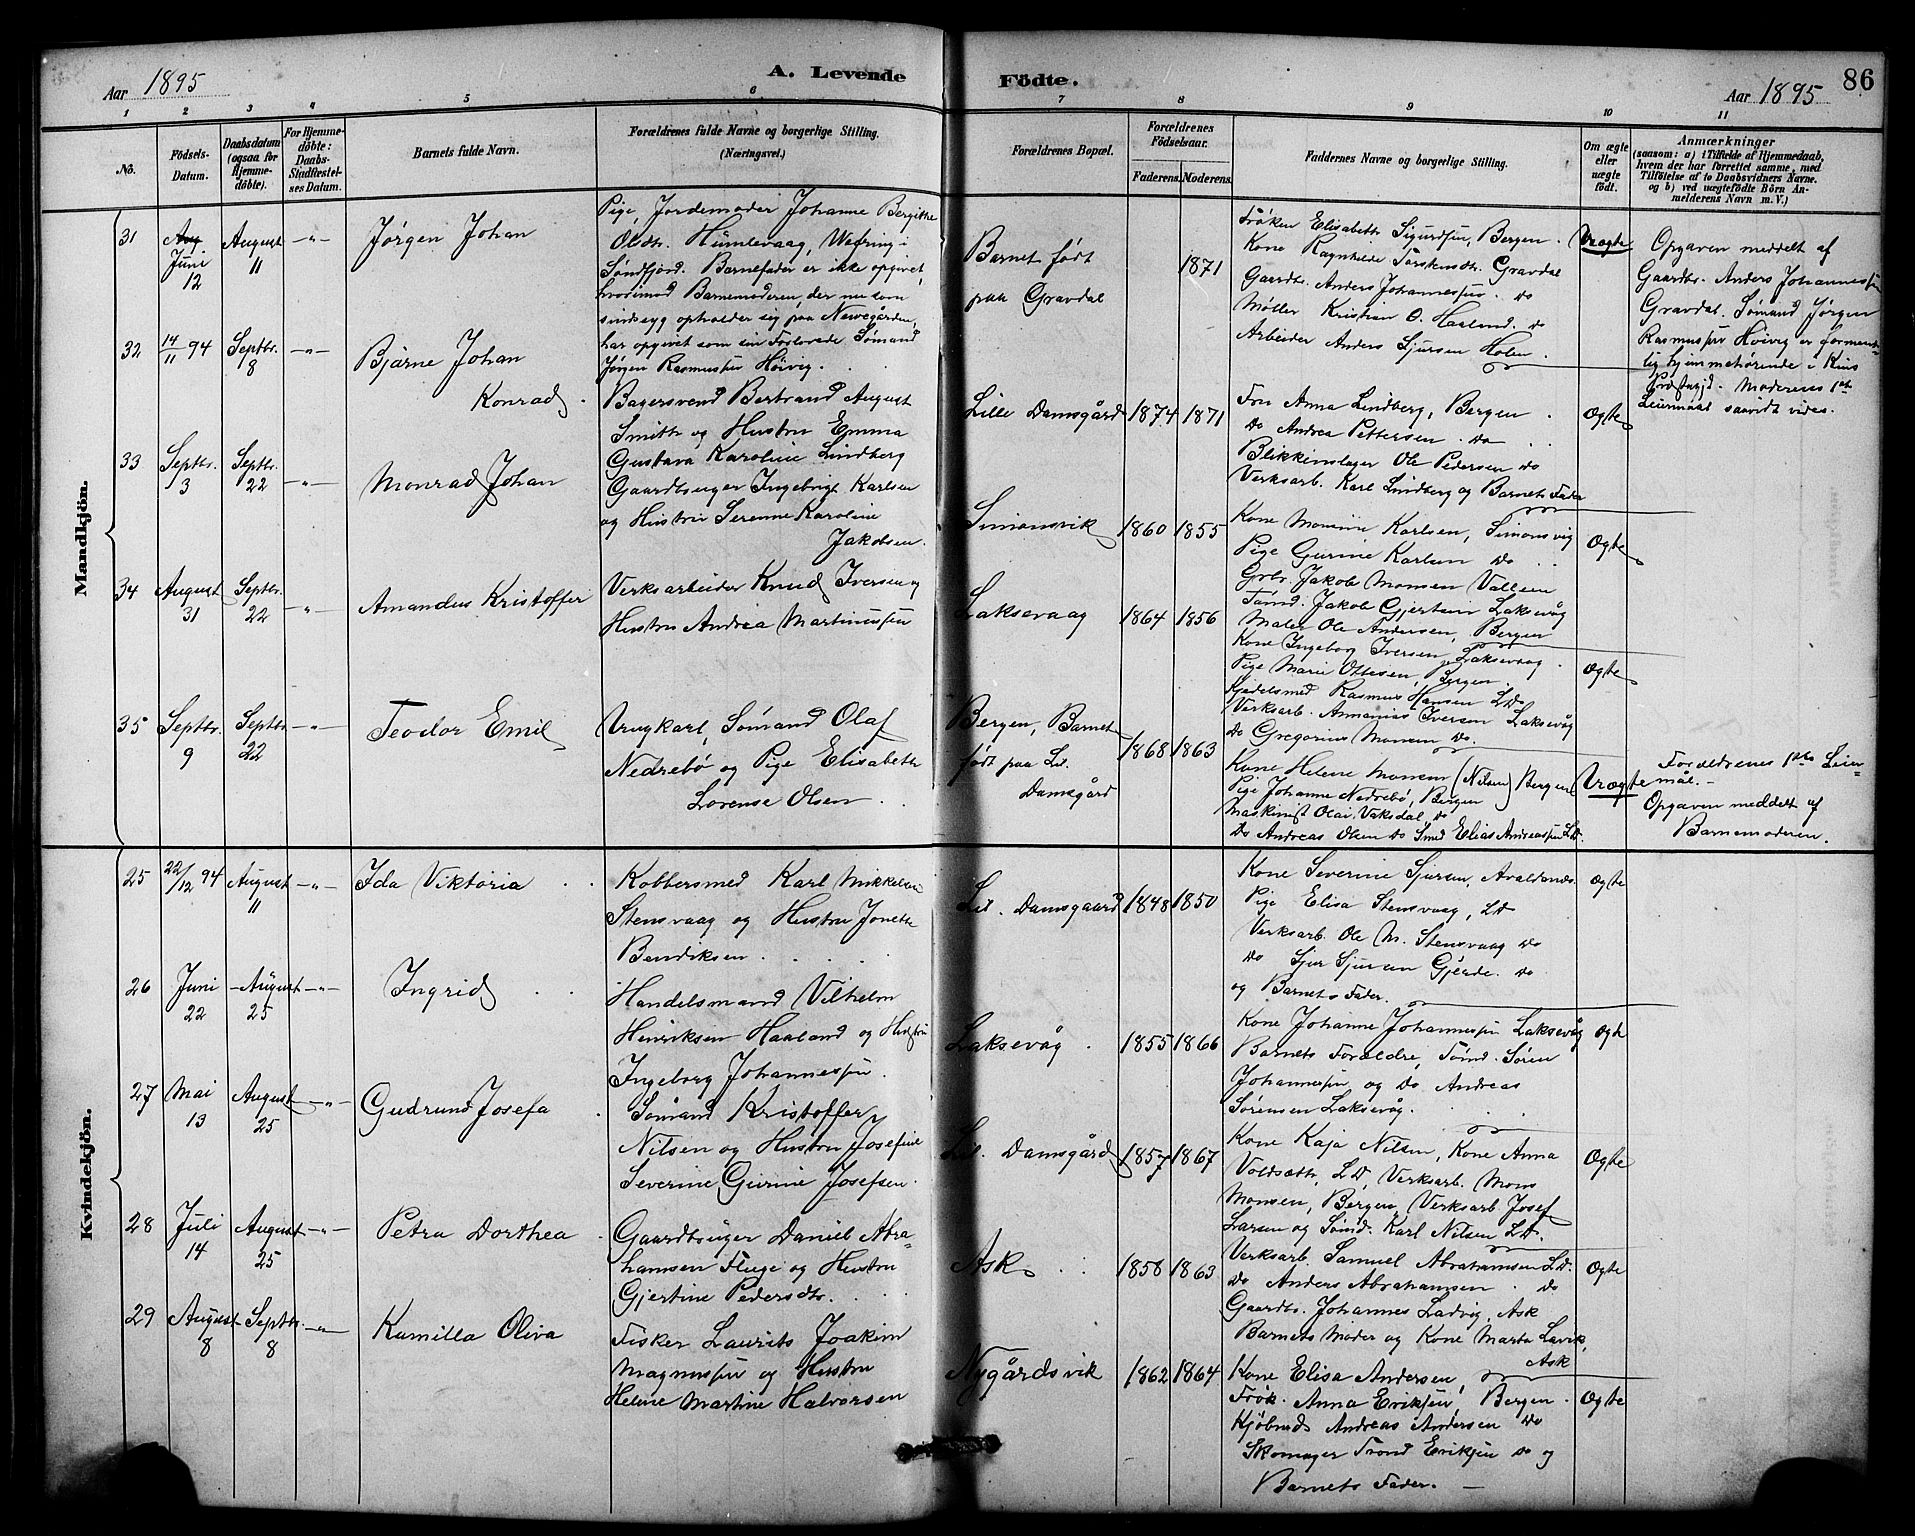 Aar 1895
A. Levende
Födte.
Aar 1895
86
1 2 3 4 5 6 7 8 9 10 11
No.
Födsels-
Datum.
Daabsdatum
(ogsaa for
Hjemme-
döbte).
For Hjemme-
döbte:
Daabs-
Stadfæstel-
ses Datum.
Barnets fulde Navn.
Forældrenes fulde Navne og borgerlige Stilling.
(Næringsvei.)
Forældrenes Bopæl.
Forældrenes
Födselsaar.
Faderens. Moderens.
Faddernes Navne og borgerlige Stilling.
Om ægte
eller
uægte
födt.
Anmærkninger
(saasom: a) i Tilfælde af Hjemmedaab,
hvem der har forrettet samme, med
Tilföielse af to Daabsvidners Navne.
og b) ved uægtefödte Börn An-
melderens Navn m. V.)
Mandkjön.
31
Aug
Juni
12
August
11
-"-
Jørgen Johan
Pige, Jordemoder Johanne Bergitte
Olsdtr. Humlevaag, Wefring i
Søndfjord. Barnefader er ikke opgivet,
hvorimod Barnemoderen, der nu som
sindssyg opholder sig paa Nevegården,
har opgivet som sin Forlovede Sømand
Jørgen Rasmussen Høivig.
Barnet født
paa Gravdal
1871
Frøken Elisabeth Sigurdsen, Bergen.
Kone Ragnhilde Torstensdtr. Gravdal
Gaardbr. Anders Johannessen. Do
Møller Kristian O. Haaland. Do
Arbeider Anders Sjursen Holen.
Uægte
Opgaven meddelt af
Gaardbr. Anders Johannessen
Gravdal. Sømand Jørgen
Rasmussen Høivig er forment-
lig hjemmehørende i Kins
Præstegjd. Moderens 1ste
Leiermaal saavidt vides.
32
14/11 94
Septbr.
8
-"-
Bjarne Johan
Konrad
Bagersvend Bertrand August
Smith og Hustru Emma
Gustava Karoline Lindberg
Lille Damsgård
1874
1871
Fru Anna Lindberg, Bergen
Do Andrea Pettersen. Do
Blikkenslager Ole Pedersen Do
Verksarb. Karl Lindberg og Barnets Fader
Ægte
33
Septbr.
3
Septbr.
22
-"-
Monrad Johan
Gaardbruger Ingebrigt Karlsen
og Hustru Serenne Karoline
Jakobsen.
Simonsvik
1860
1855
Kone Monsine Karlsen, Simonsvig
Pige Gurine Karlsen Do
Grbr. Jakob Monsen Vallem
Tømd. Jakob Gjertsen Laksevåg
Maler Ole Andersen, Bergen
Ægte
34
August
31
Septbr.
22
-"-
Amandus Kristoffer
Verksarbeider Knud Iversen og
Hustru Andrea Martinussen
Laksevaag
1864
1856
Kone Ingeborg Iversen Laksevaag.
Pige Marie Ottesen, Bergen.
Kjedelsmed Rasmus Hansen L.D.
Verksarb. Annanias Iversen Laksevåg
Do Gregorius Monsen Do.
Ægte
35
Septbr.
9
Septbr.
22
-"-
Teodor Emil
Ungkarl, Sømand Olaf
Nedrebø og Pige Elisabeth
Lorense Olsen
Bergen, Barnet
født paa Lil.
Damsgård
1868
1863
Kone Helene Monsen (Nilsen) Bergen
Pige Johanne Nedrebø, Bergen
Maskinist Olai Vaksdal, Do
Do Andreas Olsen Do Smed Elias Andreassen L.D.
Uægte
Forældrenes 1ste Leier-
mål.
Opgaven meddelt af
Barnemoderen.
Kvindekjön.
25
22/12 94
August
11
-"-
Ida Viktoria
Kobbersmed Karl Mikkelsen
Stensvaag og Hustru Jonette
Bendiksen
Lil. Damsgaard
1848
1850
Kone Severine Sjursen, Avaldsnæs.
Pige Elisa Stensvaag, L.D
Verksarb. Ole M. Stensvaag Do
Do Sjur Sjursen Gjerde. Do
og Barnets Fader.
Ægte
26
Juni
22
August
25
-"-
Ingrid
Handelsmand Vilhelm
Henriksen Haaland og Hustru
Ingeborg Johannessen.
Laksevåg
1855
1866
Kone Johanne Johannessen Laksevåg
Barnets Forældre, Tømd. Søren
Johannessen og Do Andreas
Sørensen Laksevåg.
Ægte
27
Mai
13
August
25
-"-
Gudrun Josefa
Sømand Kristoffer
Nilsen og Hustru Josefine
Severine Gurine Josefsen.
Lil. Damsgård
1857
1867
Kone Kaja Nilsen, Kone Anna
Voldsæth, L.D, Verksarb. Mons
Monsen, Bergen, Verksarb Josef
Larsen og Sømd. Karl Nilsen L.D.
Ægte
28
Juli
14
August
25
-"-
Petra Dorthea
Gaardbruger Daniel Abra-
hamsen Fluge og Hustru
Gjertine Pedersdtr.
Ask
1858
1863
Verksarb. Samuel Abrahamsen L.D.
Do Anders Abrahamsen Do
Gaardbr. Johannes Ladvig, Ask
Barnets Moder og Kone Marta Lavik,
Ask
Ægte
29
August
8
Septbr.
8
-"-
Kamilla Oliva
Fisker Laurits Joakim
Magnussen og Hustru
Helene Martine Halvorsen
Nygårdsvik
1862
1864
Kone Elisa Andersen,
Frøk. Anna Eriksen, Bergen
Kjøbmd. Andreas Andersen Do
Skomager Trond Eriksen Do og
Barnets Fader.
Ægte